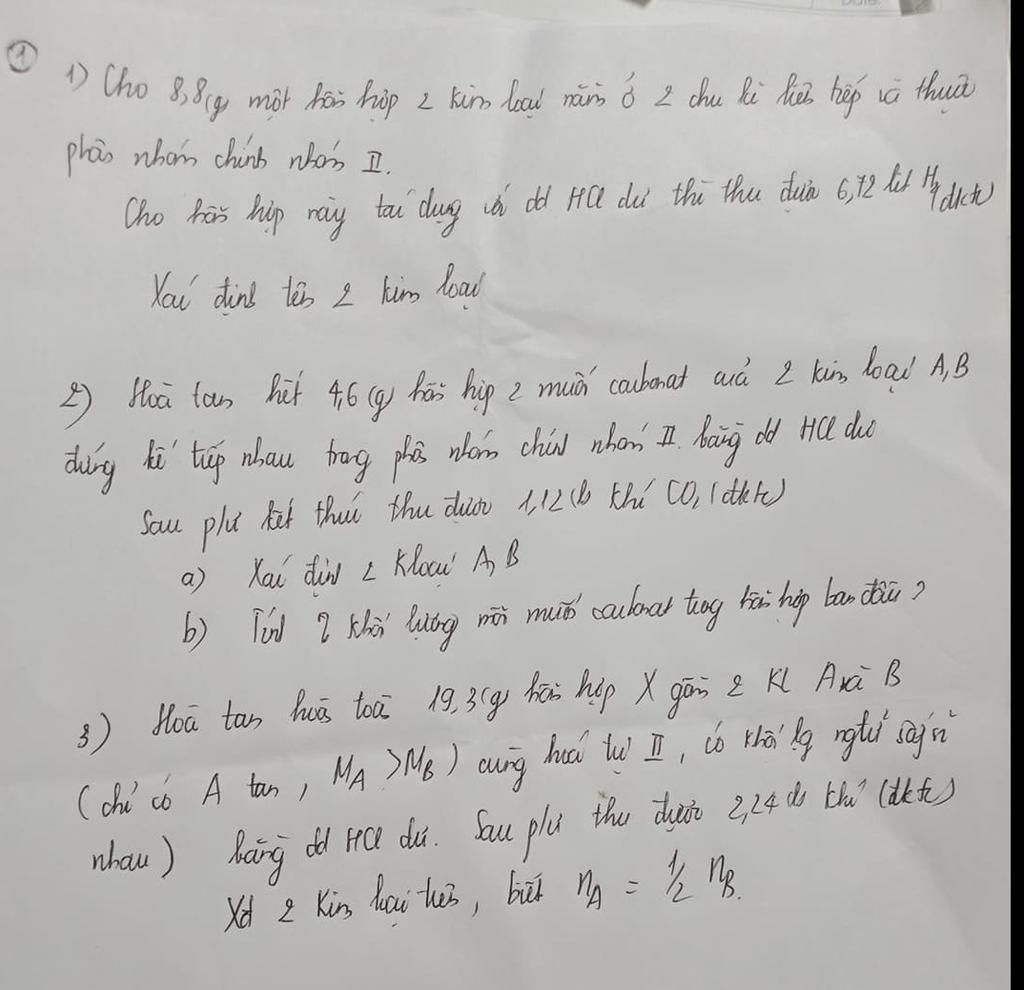 ①
1) Cho 8,8(g) một hỗn hợp 2 kim loại nằm ở 2 chu kì liên tiếp và thuộc
phân nhóm chính nhóm II.
Cho hỗn hợp này tác dụng với dd HCl dư thì thu được 6,72 lít H₂ đktc)
Xác định tên 2 kim loại
2) Hoà tan hết 4,6 (g) hỗn hợp 2 muối cacbonat của 2 kim loại A, B
đứng kế tiếp nhau trong phân nhóm chính nhóm II. bằng dd HCl dư
Sau pư kết thúc thu được 1,12 (l) khí CO₂ (đktc)
a) Xác định 2 Kloại A, B
b) Tính % khối lượng mỗi muối cacbonat trong hỗn hợp ban đầu ?
3) Hoà tan hoàn toàn 19,3(g) hỗn hợp X gồm 2 KL A và B
(chỉ có A tan, M_A > M_B) cùng hoá trị II, có khối lg ngtử xấp xỉ
nhau) bằng dd HCl dư. Sau pư thu được 2,24 khí (đktc)
Xđ 2 kim loại trên, biết n_A = 1/2 n_B.